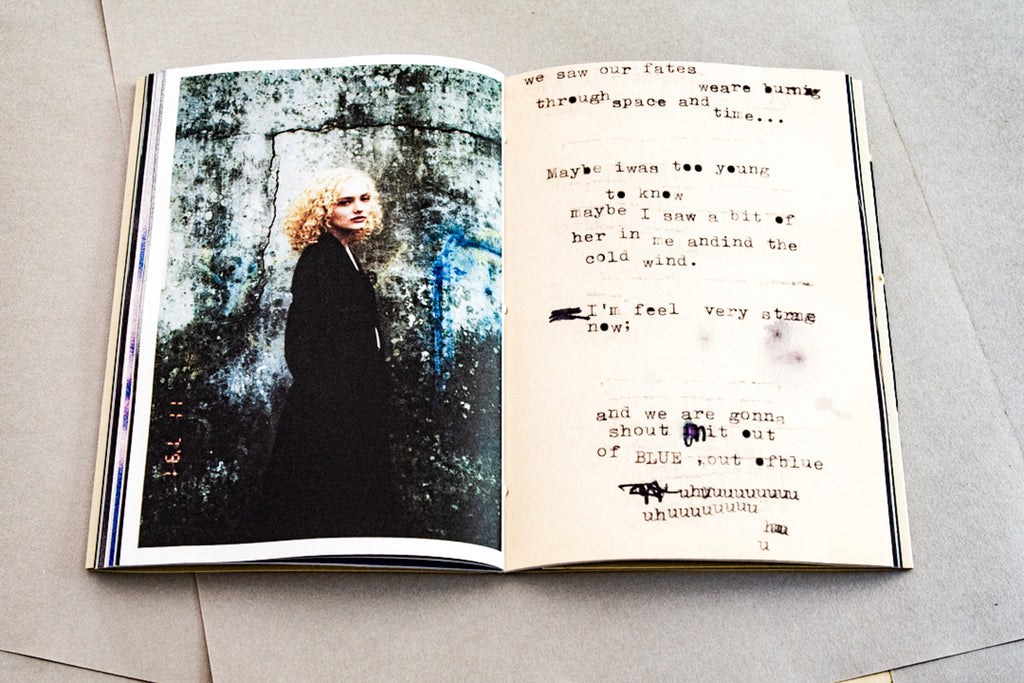 we saw our fates
weare burnig
through space and
time...
Maybe iwas too young
to know
maybe I saw a bit of
her in me andind the
cold wind.
I'm feel very strng
now;
and we are gonna
shout it out
of BLUE ,out ofblue
uhuuuuuuuuu
uhuuuuuuuuu
huu
u